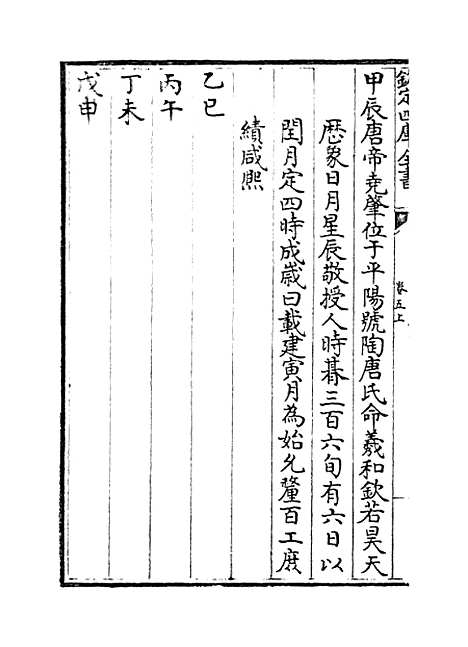 欽定四庫全書
卷五上
甲辰唐帝堯肇位于平陽號陶唐氏命羲和欽若昊天
歷象日月星辰敬授人時朞三百六旬有六日以
閏月定四時成歲曰載建寅月為始允釐百工庶
績咸熙
乙巳
丙午
丁未
戊申